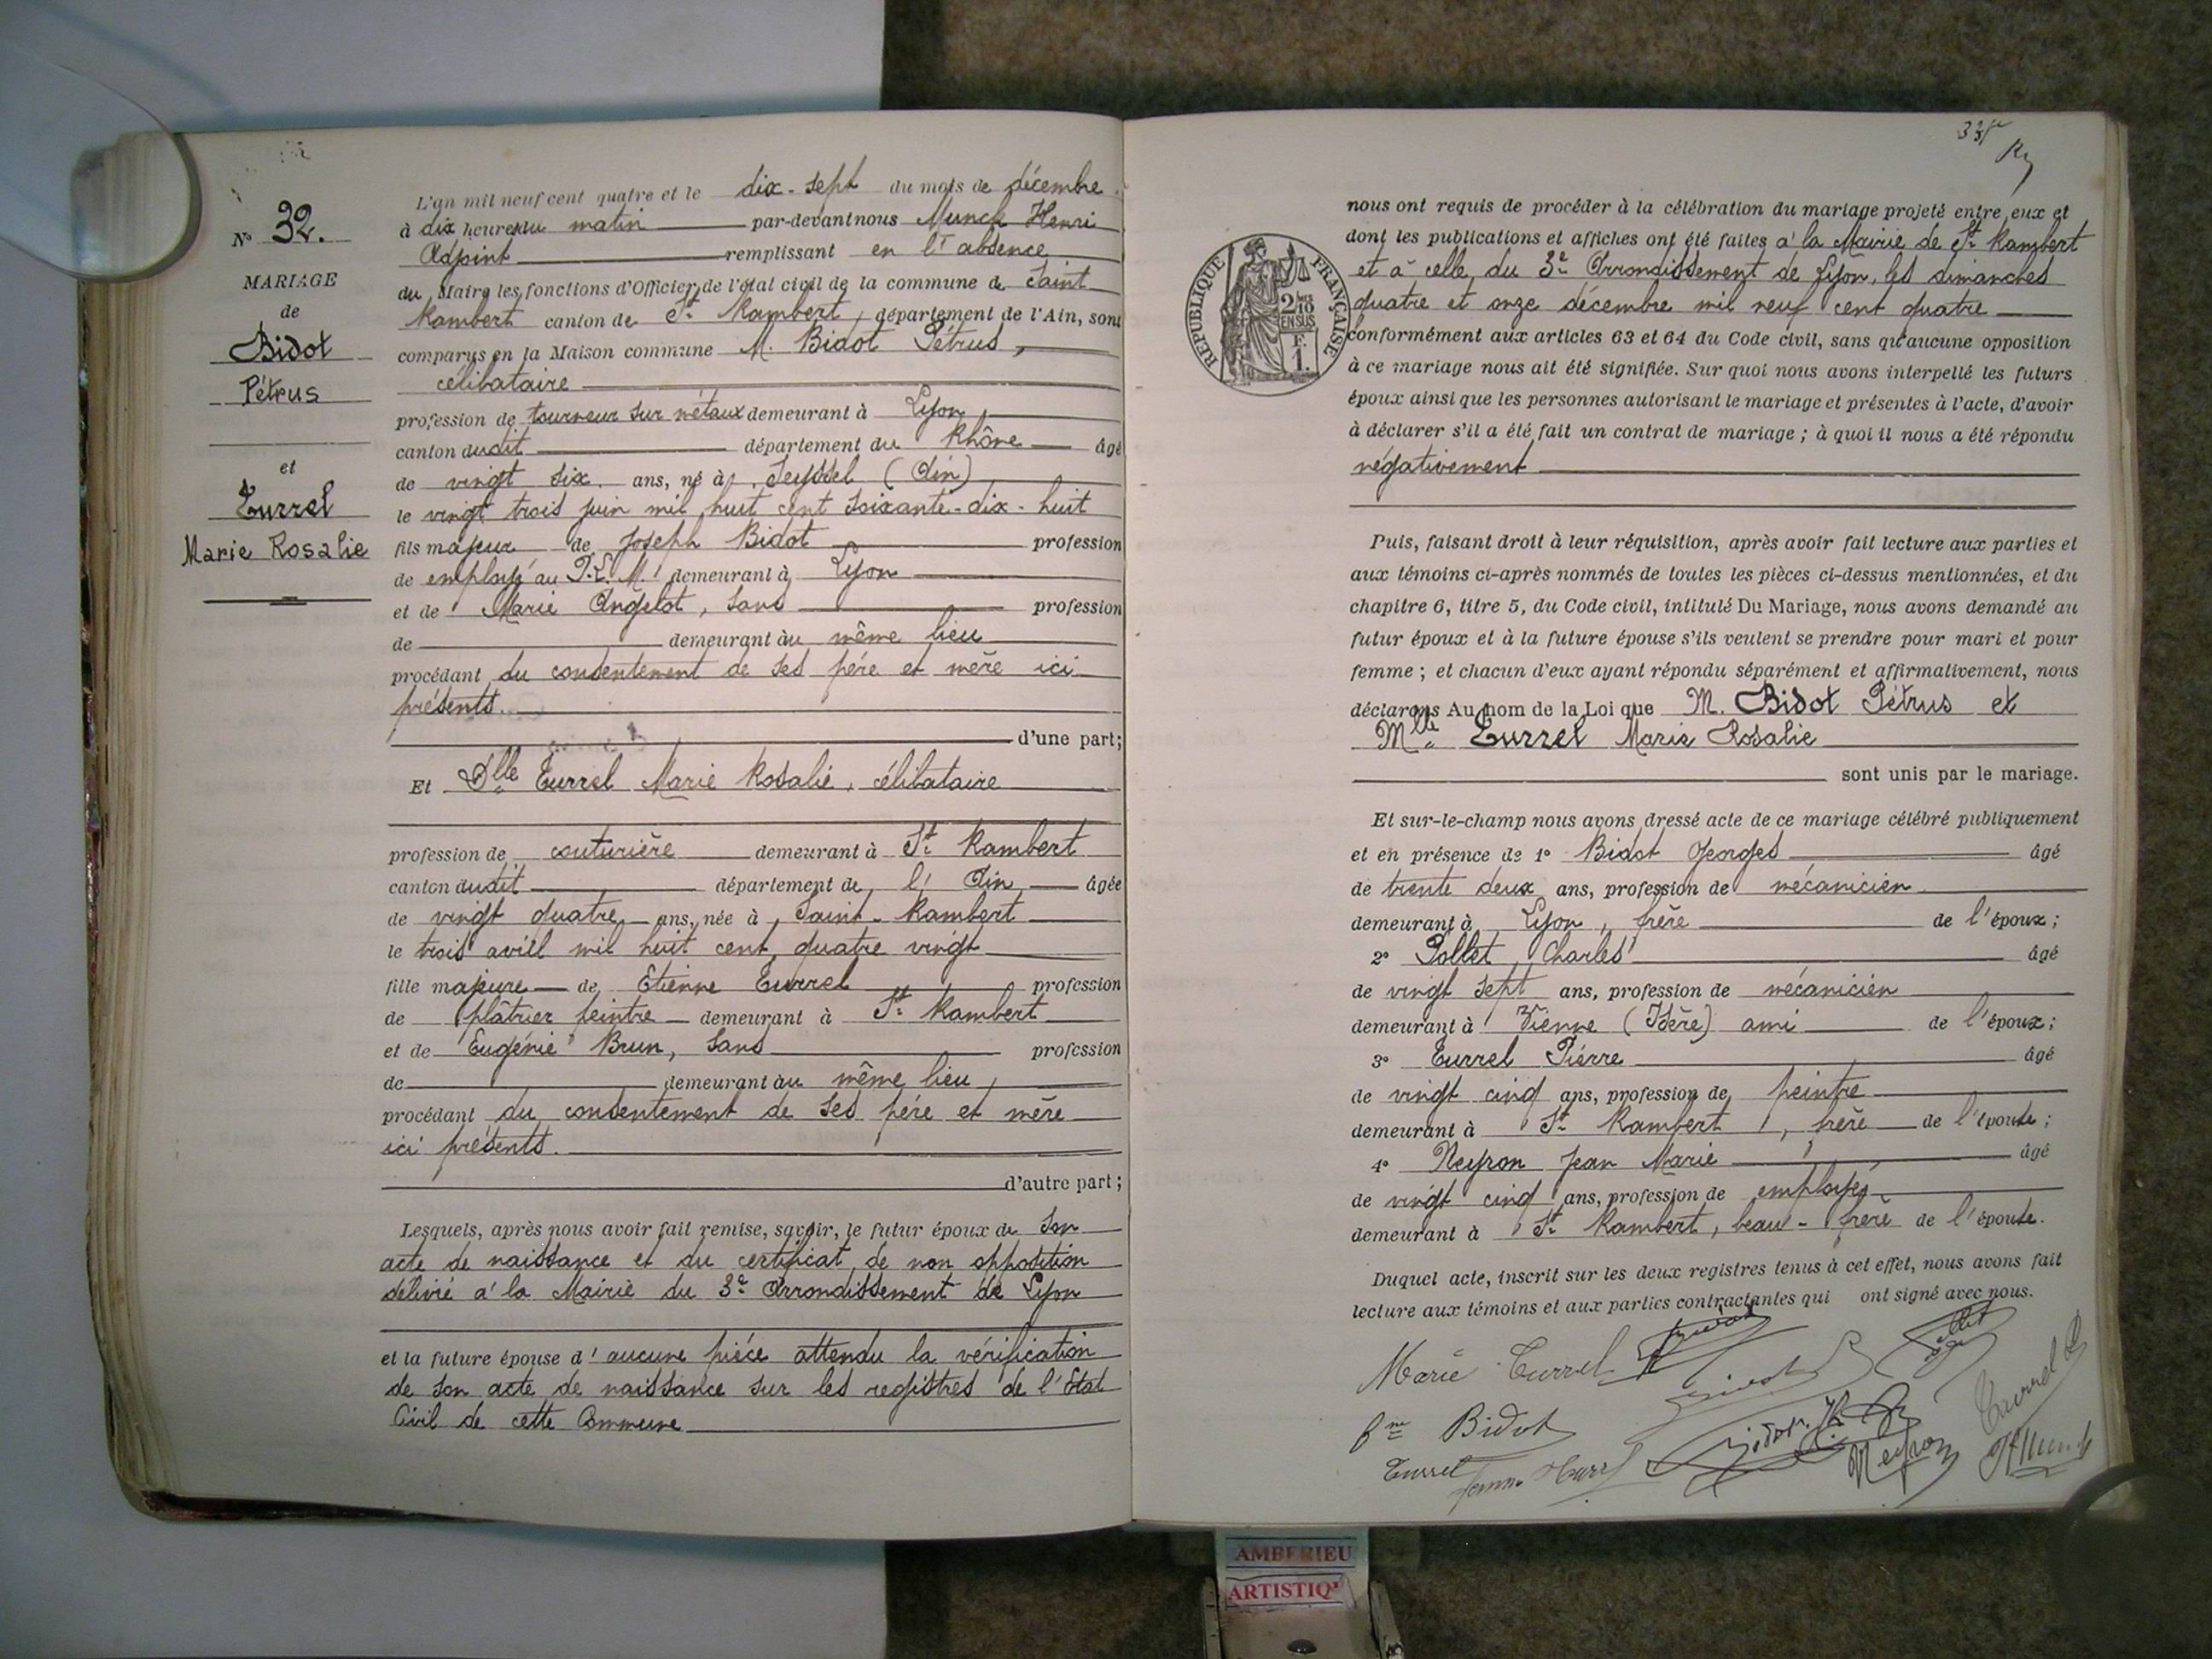 N° 32.
MARIAGE
de
Bidot
Pétrus
et
Turrel
Marie Rosalie
L'an mil neuf cent quatre et le dix-sept du mois de décembre
à dix heures du matin par-devant nous Munch Henri
Adjoint remplissant en l' absence
du Maire les fonctions d'Officier de l'état civil de la commune de Saint
Rambert canton de St Rambert, département de l'Ain, sont
comparus en la Maison commune M. Bidot Pétrus,
célibataire
profession de tourneur sur métaux demeurant à Lyon,
canton dudit département du Rhône âgé
de vingt six ans, né à Seyssel (Ain)
le vingt trois juin mil huit cent soixante-dix-huit
fils majeur de Joseph Bidot profession
de employé au P.L.M. demeurant à Lyon
et de Marie Angelot, sans profession
de demeurant au même lieu
procédant du consentement de ses père et mère ici
présents.
d'une part;
Et Dlle Turrel Marie Rosalie, célibataire
profession de couturière demeurant à St Rambert
canton dudit département de l' Ain âgée
de vingt quatre ans, née à Saint-Rambert
le trois avril mil huit cent quatre vingt
fille majeure de Etienne Turrel profession
de plâtrier peintre demeurant à St Rambert
et de Eugénie Brun, sans profession
de demeurant au même lieu,
procédant du consentement de ses père et mère
ici présents.
d'autre part;
Lesquels, après nous avoir fait remise, savoir, le futur époux de son
acte de naissance et du certificat de non opposition
délivré à la Mairie du 3e Arrondissement de Lyon
et la future épouse d'aucune pièce attendu la vérification
de son acte de naissance sur les registres de l'Etat
Civil de cette Commune
REPUBLIQUE FRANÇAISE
2/10
EN SUS
F.
1.
nous ont requis de procéder à la célébration du mariage projeté entre eux et
dont les publications et affiches ont été faites à la Mairie de St Rambert
et à celle du 3e Arrondissement de Lyon, les dimanches
quatre et onze décembre mil neuf cent quatre
conformément aux articles 63 et 64 du Code civil, sans qu'aucune opposition
à ce mariage nous ait été signifiée. Sur quoi nous avons interpellé les futurs
époux ainsi que les personnes autorisant le mariage et présentes à l'acte, d'avoir
à déclarer s'il a été fait un contrat de mariage; à quoi il nous a été répondu
négativement
Puis, faisant droit à leur réquisition, après avoir fait lecture aux parties et
aux témoins ci-après nommés de toutes les pièces ci-dessus mentionnées, et du
chapitre 6, titre 5, du Code civil, intitulé Du Mariage, nous avons demandé au
futur époux et à la future épouse s'ils veulent se prendre pour mari et pour
femme; et chacun d'eux ayant répondu séparément et affirmativement, nous
déclarons Au nom de la Loi que M. Bidot Pétrus et
Mlle Turrel Marie Rosalie
sont unis par le mariage.
Et sur-le-champ nous avons dressé acte de ce mariage célébré publiquement
et en présence de 1° Bidot Georges âgé
de trente deux ans, profession de mécanicien
demeurant à Lyon, frère de l'époux;
2° Pollet Charles âgé
de vingt sept ans, profession de mécanicien
demeurant à Vienne (Isère) ami de l'époux;
3° Turrel Pierre âgé
de vingt cinq ans, profession de peintre
demeurant à St Rambert, frère de l'épouse;
4° Neyron Jean Marie âgé
de vingt cinq ans, profession de employé
demeurant à St Rambert, beau-frère de l'épouse.
Duquel acte, inscrit sur les deux registres tenus à cet effet, nous avons fait
lecture aux témoins et aux parties contractantes qui ont signé avec nous.
Marie Turrel
fme Bidot
Turrel
Neyron
Turrel P
H Munch
AMBERIEU
ARTISTIQ